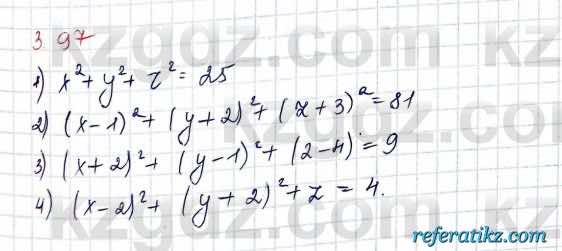 3 97
1) x² + y² + z² = 25
2) (x-1)² + (y+2)² + (z+3)² = 81
3) (x+2)² + (y-1)² + (2-4)² = 9
4) (x-2)² + (y+2)² + z = 4.
kzgdz.com
referatikz.com